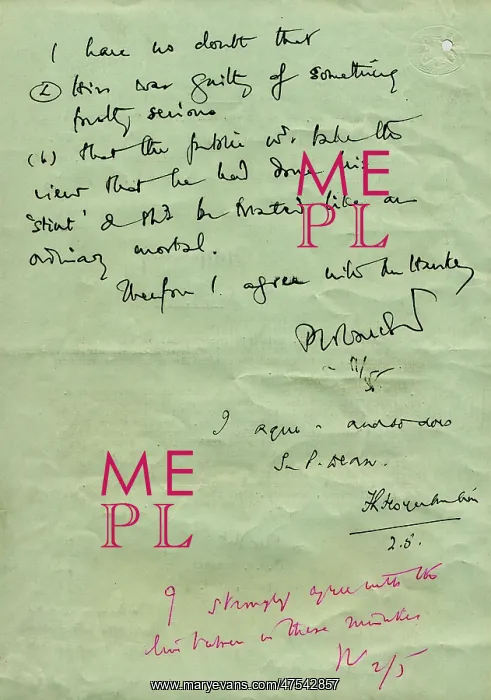 I have no doubt that
(a) Hiss was guilty of something
pretty serious
(b) that the public wd. take the
view that he had done his
'stint' & shd be treated like an
ordinary mortal.
Therefore I agree with Mr Hankey
I agree - and so does
Sir P. Dean.
2.5.
I strongly agree with the
line taken in these minutes
2/5
ME
PL
ME
PL
www.maryevans.com/47542857